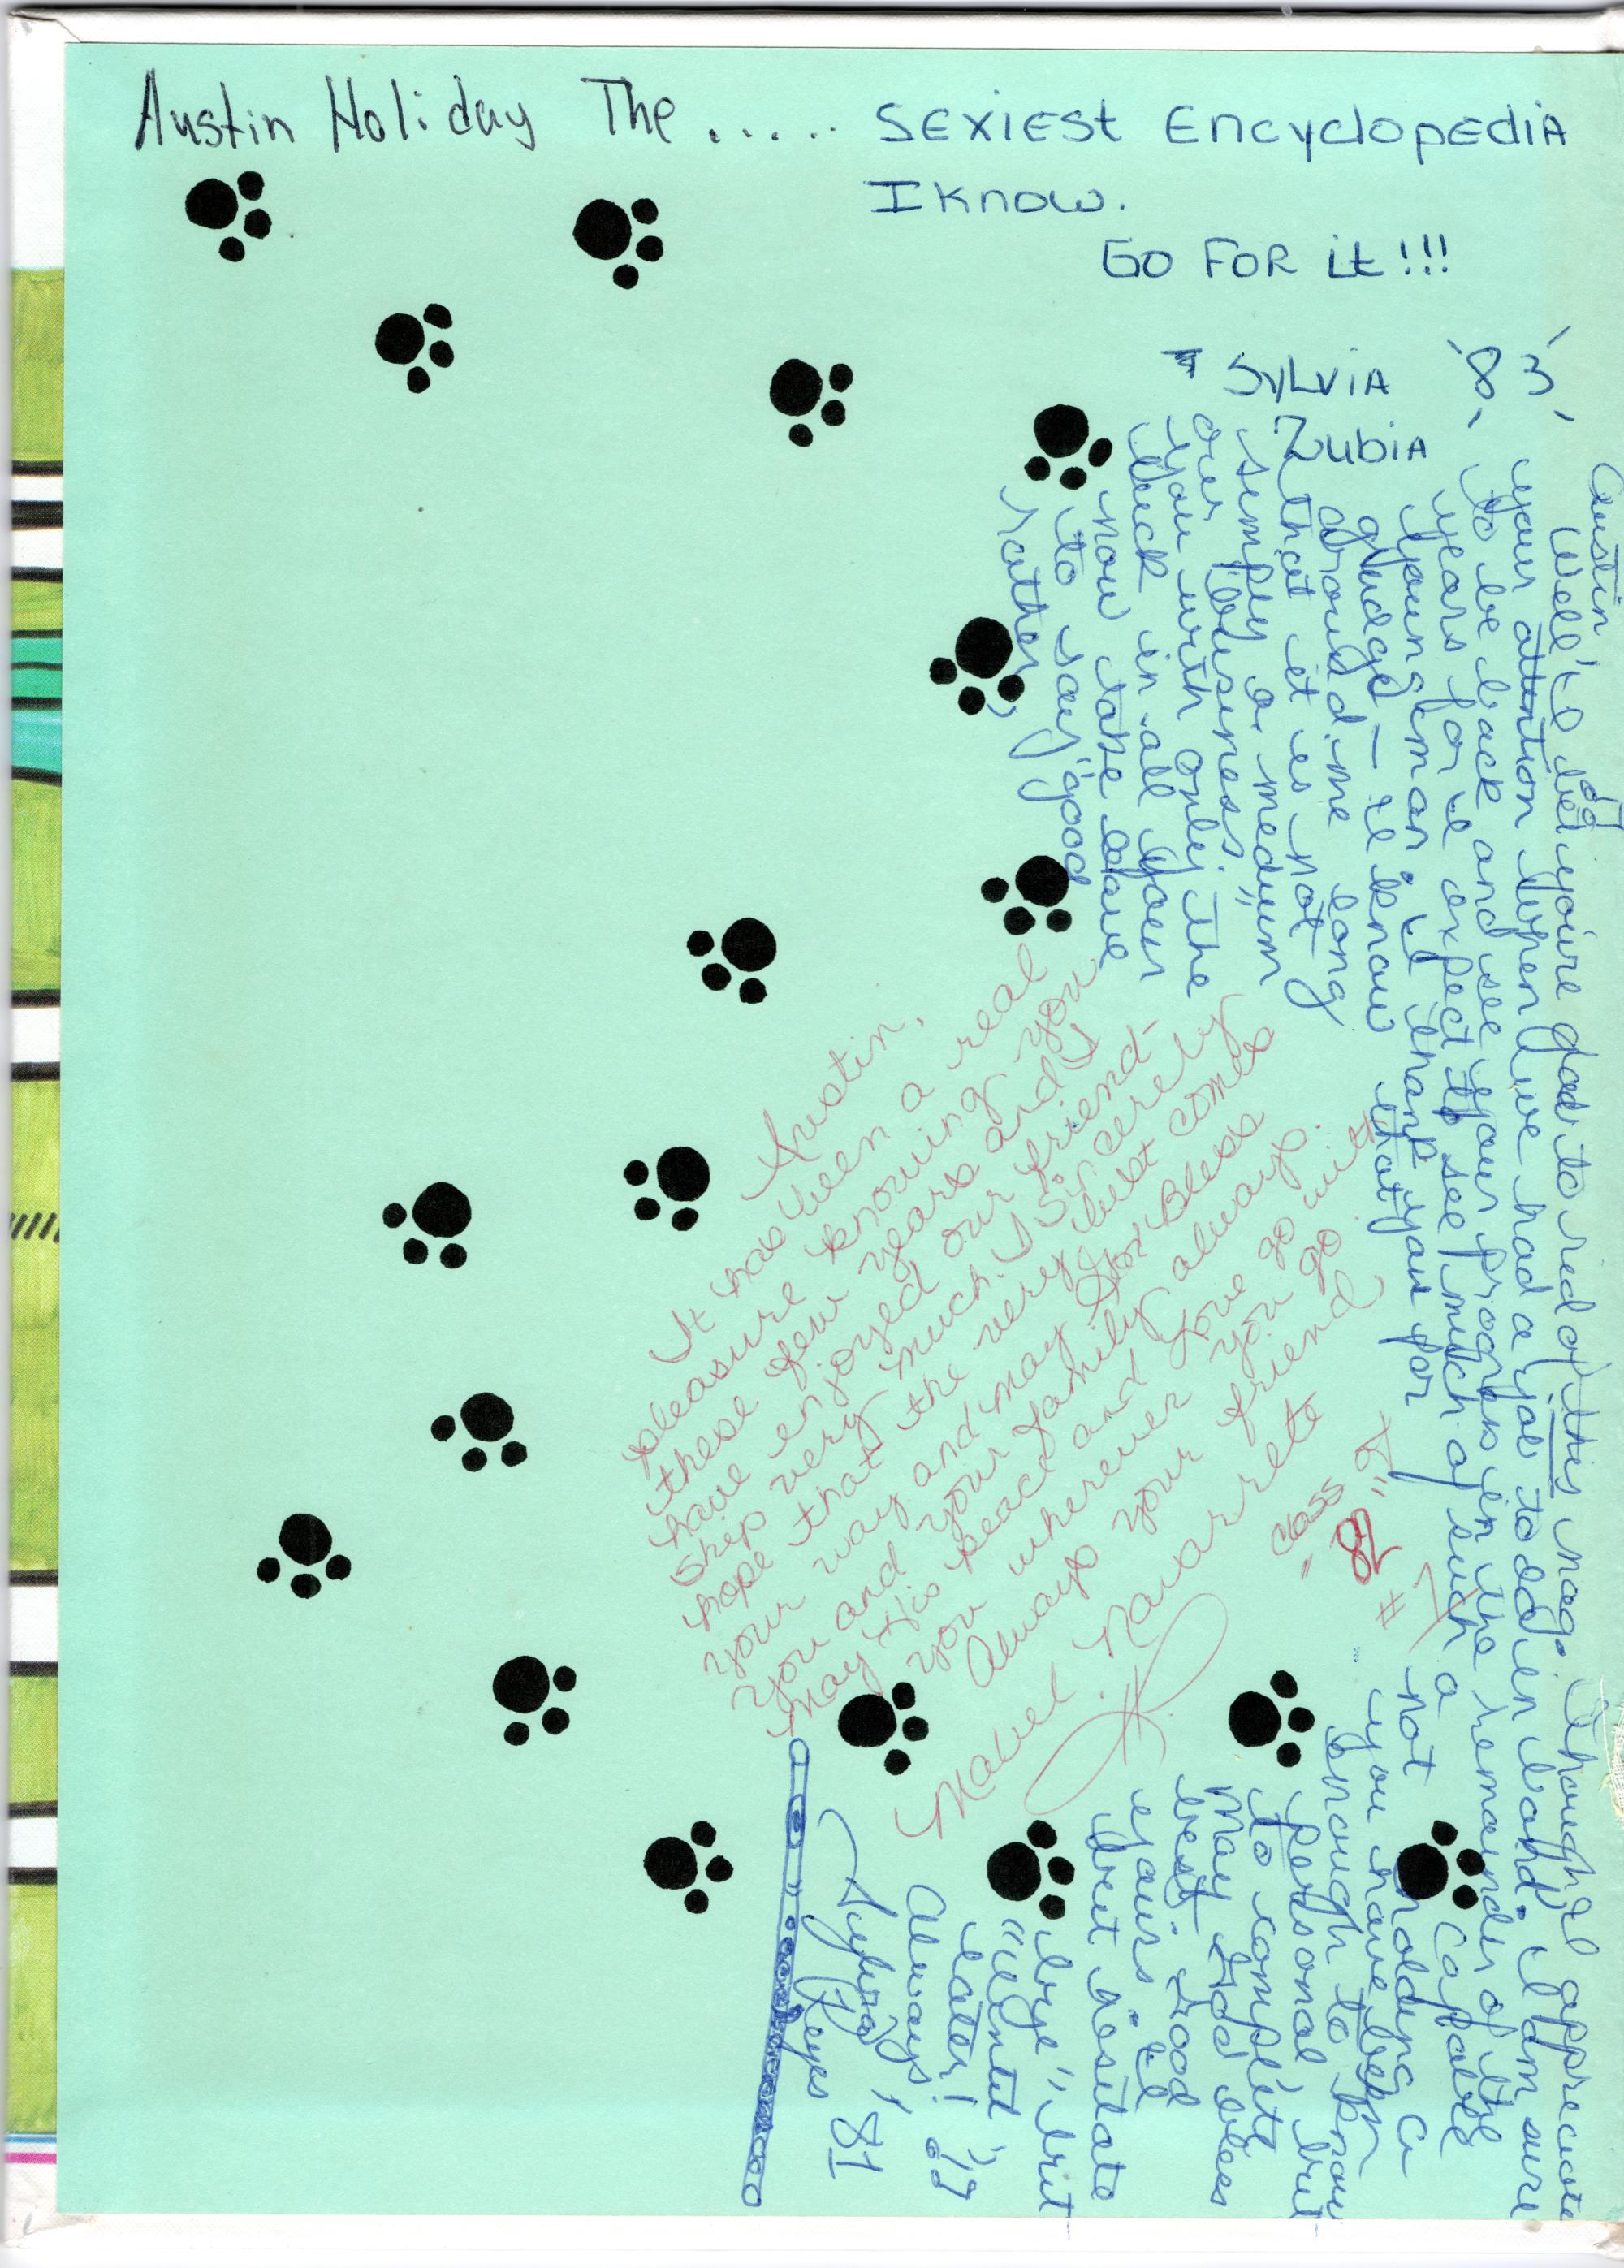 Austin Holiday The ..... SEXiEst EncyclopEdiA
I know.
GO FOR it!!!
SyLviA
ZubiA
'83'
Austin,
Well, I bet you're glad to rid of this mag. Though I appreciate
your attention when we had a job to do in band. I am sure
to be back and see your progress in the remainder of the
years for I expect to see much of such a capable
young man. I thank you for not holding a
grudge – I know that you have been
around me long enough to know
that it is not personal, but
simply a medium to complete
our "business." May God bless
you with only the best. Good
luck in all yours. I
now take leave but hesitate
to say "good bye", but
rather, "until
later!"
Always,
Sylvia Reyes 81
Austin,
It has been a real
pleasure knowing you
these few years and I
have enjoyed our friend-
ship very much. I sincerely
hope that the very best comes
your way and may God Bless
you and your family always.
May His peace and love go with
you wherever you go.
Always your friend
Mabel Navarrete
"class of"
82
#1